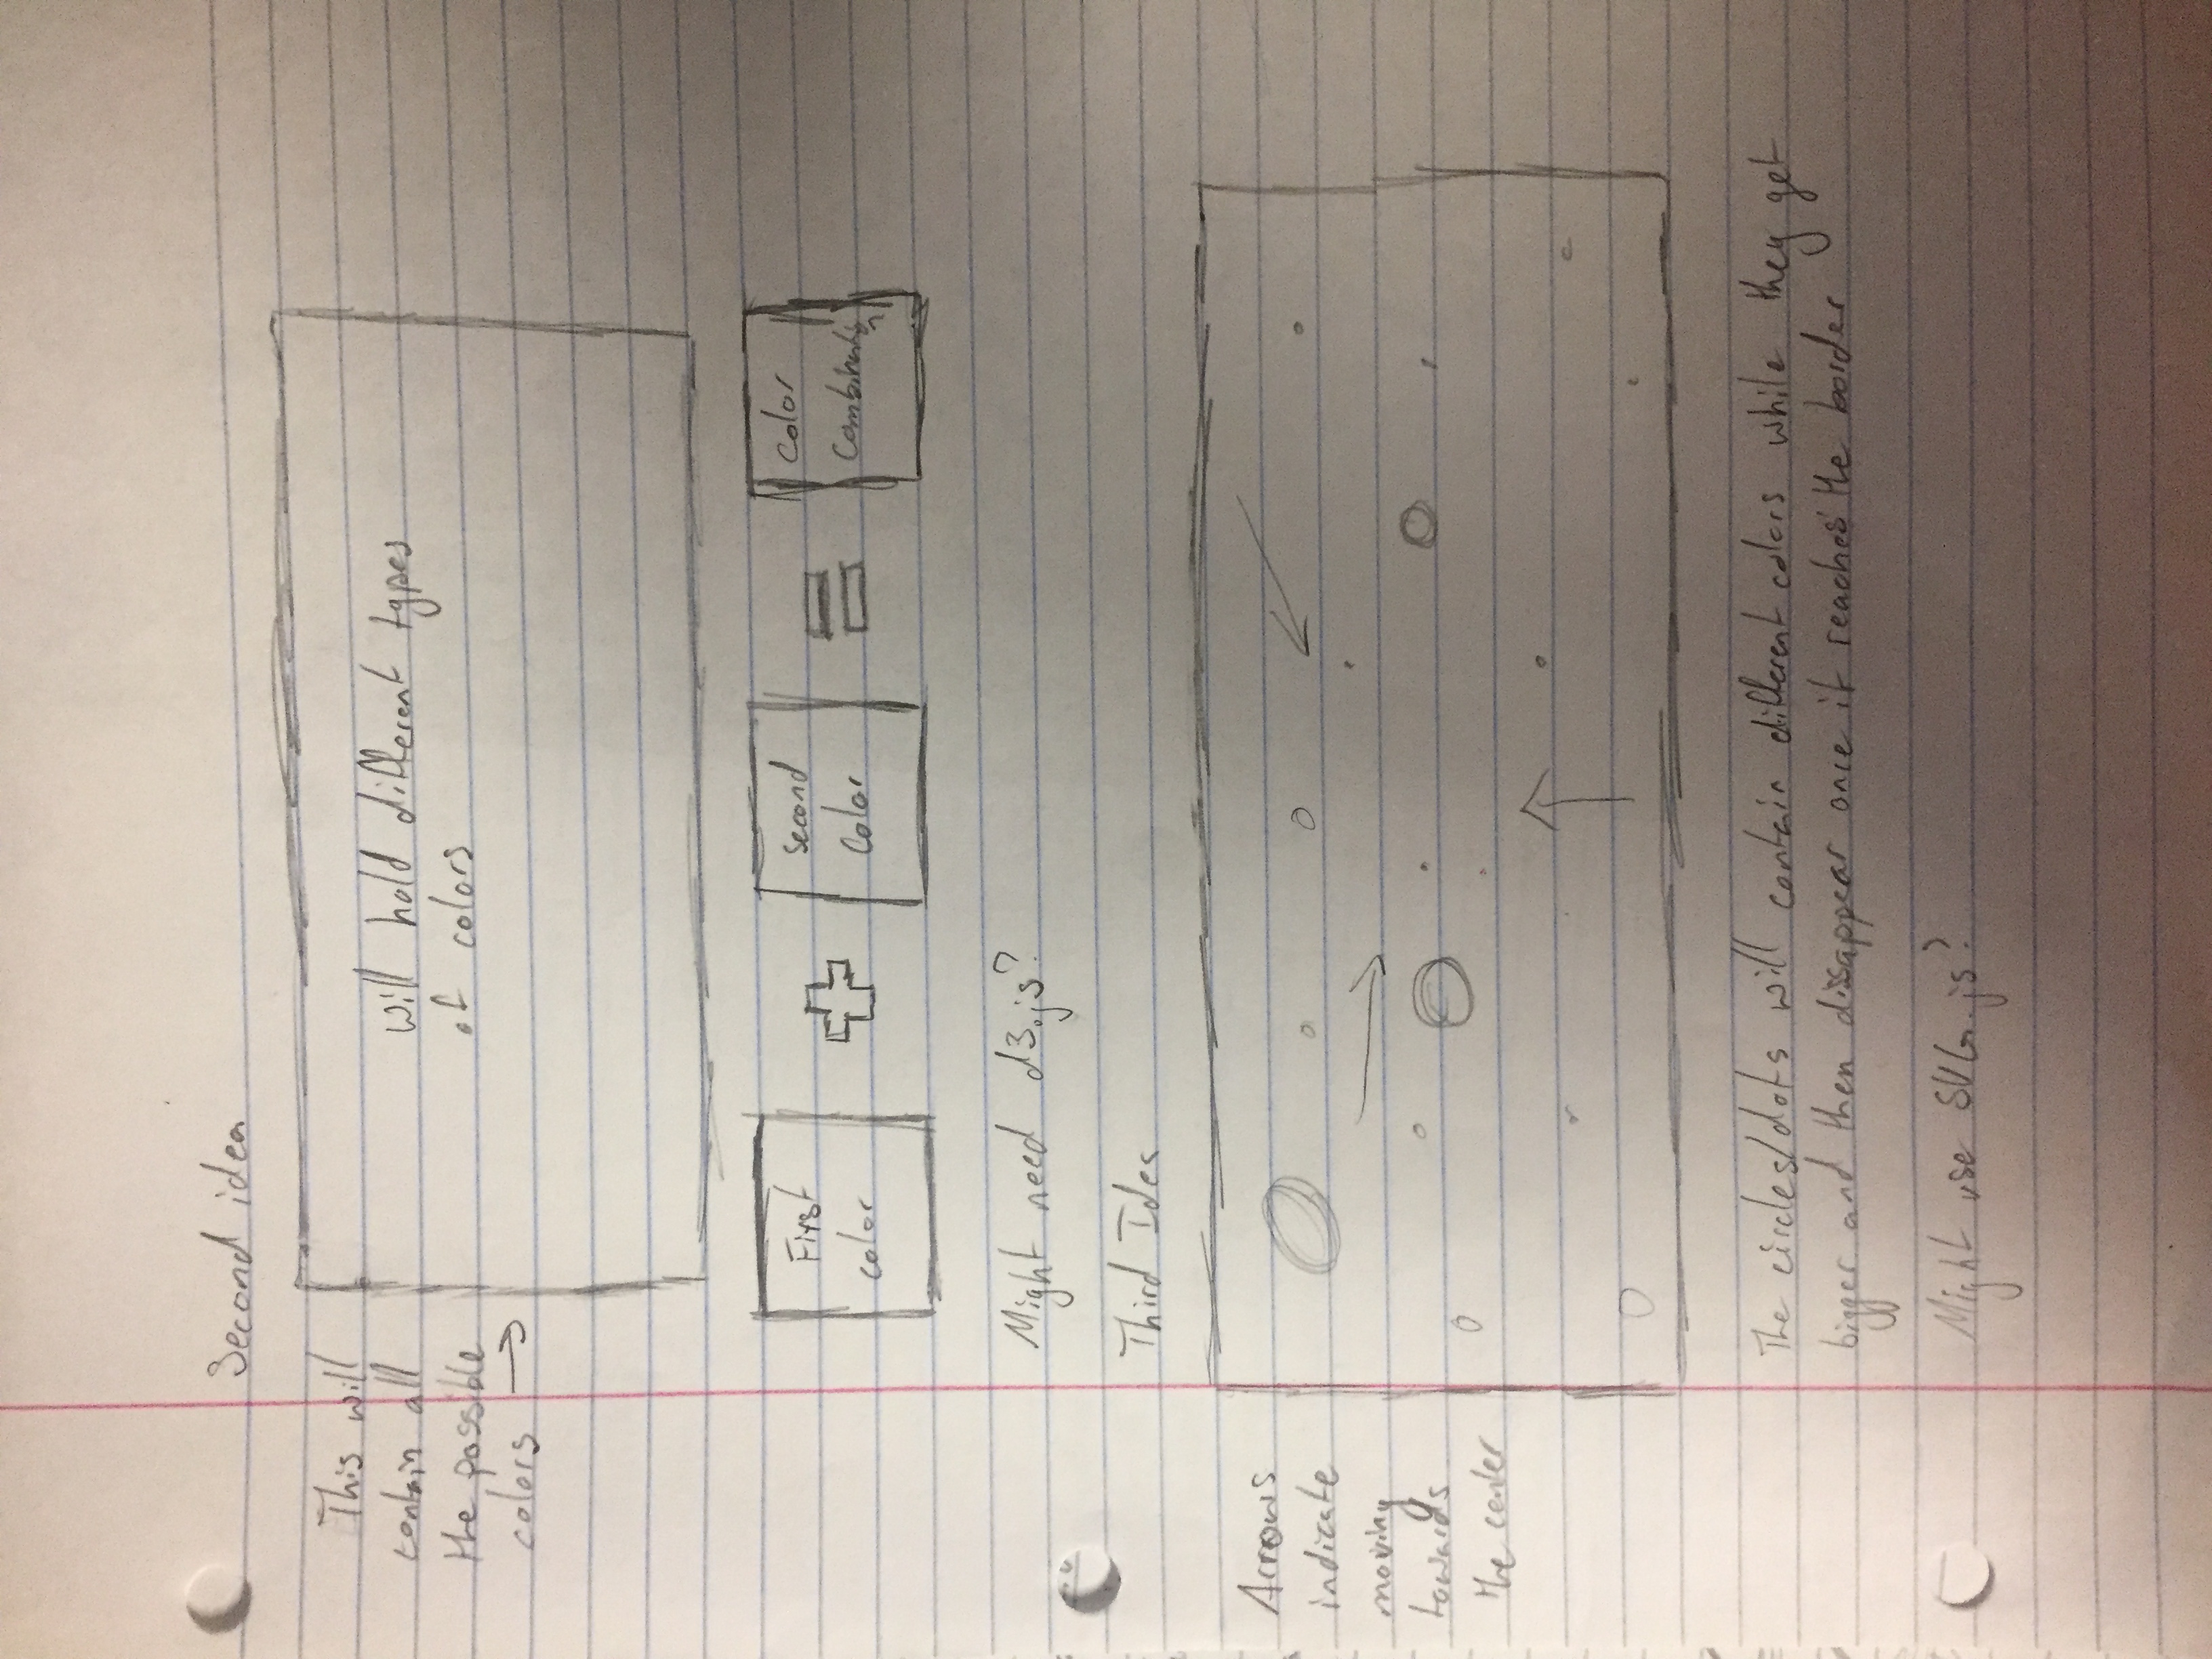 Second idea
This will
contain all
the possible
colors →
will hold different types
of colors
First
color
second
Color
color
Combination
Might need d3.js?
Third Idea
Arrows
indicate
moving
towards
the center
The circles/dots will contain different colors while they get
bigger and then dissappear once it reaches the border
Might use SVG.js?